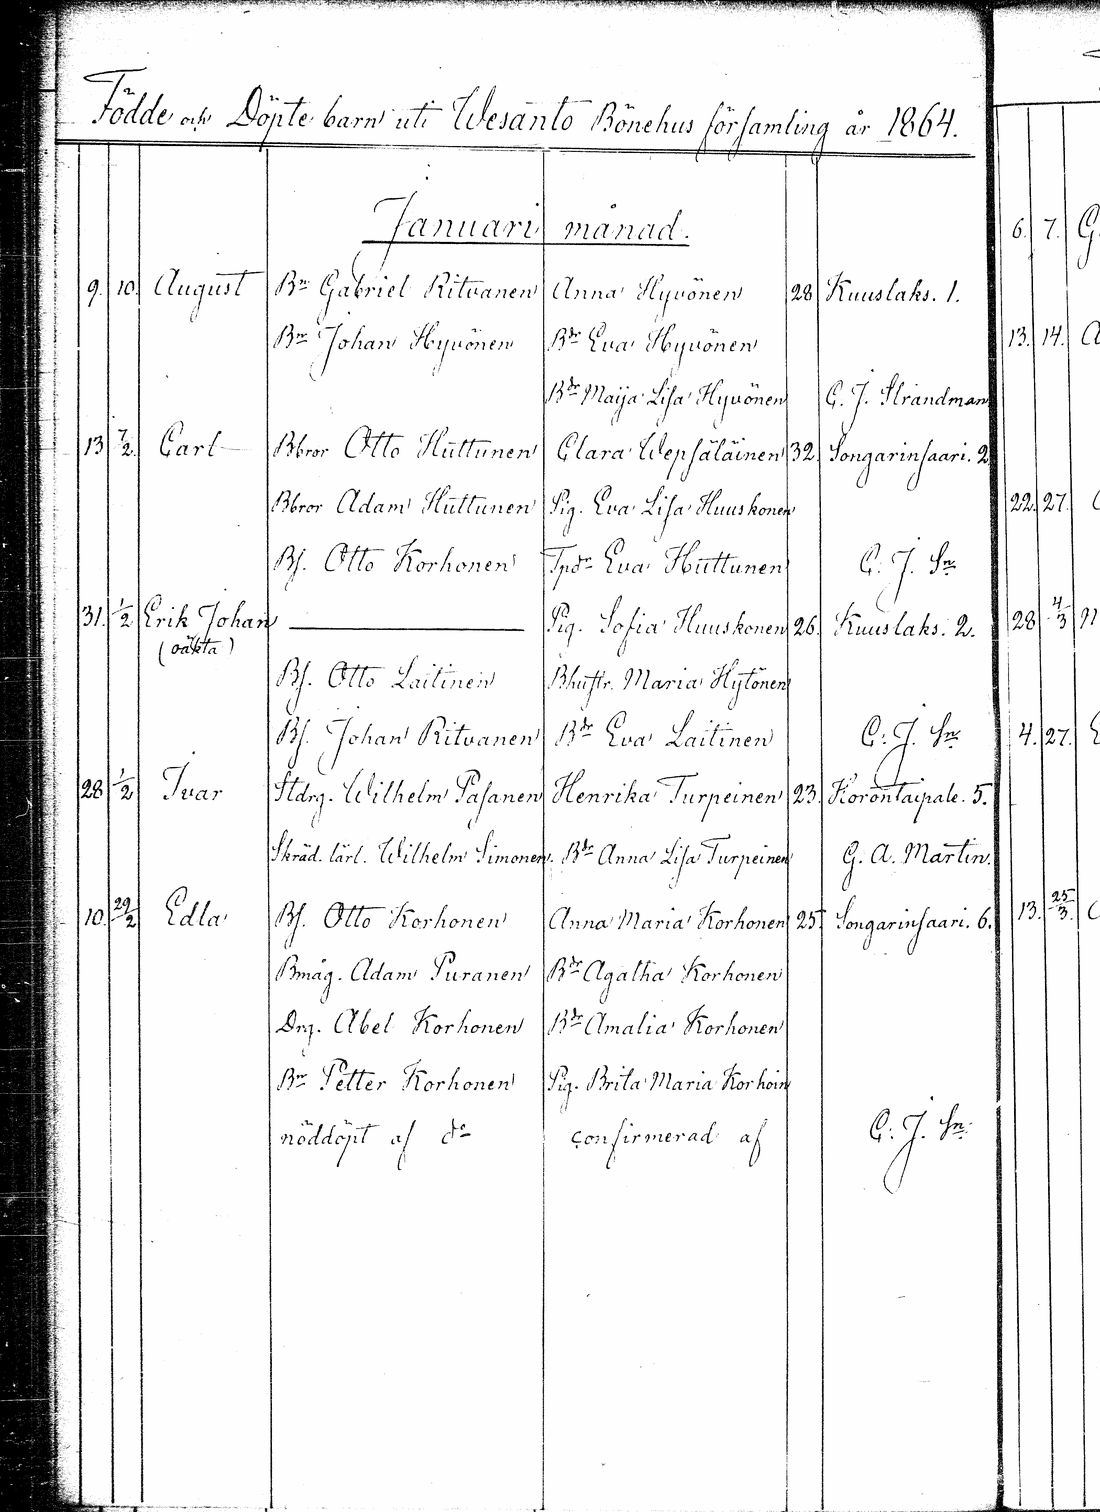 Födde och Döpte barn uti Wesanto Bönehus församling år 1864.
Januari månad.
9. 10. August Bn Gabriel Ritvanen Anna Hyvönen 28 Kuuslaks. 1.
Bn Johan Hyvönen Bdr Eva Hyvönen
Bdr Maija Lisa Hyvönen C. J. Strandman
13 7/2. Carl Bbror Otto Huttunen Clara Wepsäläinen 32. Songarinsaari. 2
Bbror Adam Huttunen Pig. Eva Lisa Huuskonen
Bs. Otto Korhonen Tpdr Eva Huttunen C. J. Sn
31. 1/2 Erik Johan Pig. Sofia Huuskonen 26. Kuuslaks. 2.
(oäkta)
Bs. Otto Laitinen Bhustr. Maria Hytönen
Bs. Johan Ritvanen Bdr Eva Laitinen C. J. Sn
28 1/2 Ivar Stdrg. Wilhelm Pasanen Henrika Turpeinen 23. Korontaipale. 5.
Skräd. lärl. Wilhelm Simonen. Bdr Anna Lisa Turpeinen G. A. Martin.
10. 29/2 Edla Bs. Otto Korhonen Anna Maria Korhonen 25 Songarinsaari. 6.
Bmåg. Adam Puranen Bdr Agatha Korhonen
Drg. Abel Korhonen Bdr Amalia Korhonen
Bn Petter Korhonen Pig. Brita Maria Korhoin
nöddöpt af do confirmerad af C. J. Sn.
6. 7. G
13. 14. A
22. 27.
28 4/3 M
4. 27. E
13. 25/3.